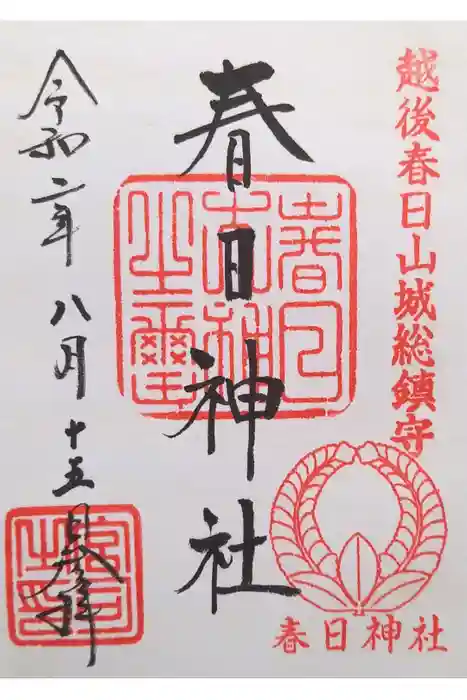 越後春日山城総鎮守
春日神社
春日神社
令和二年八月十五日奉拝
春日大神之璽
宮司之印